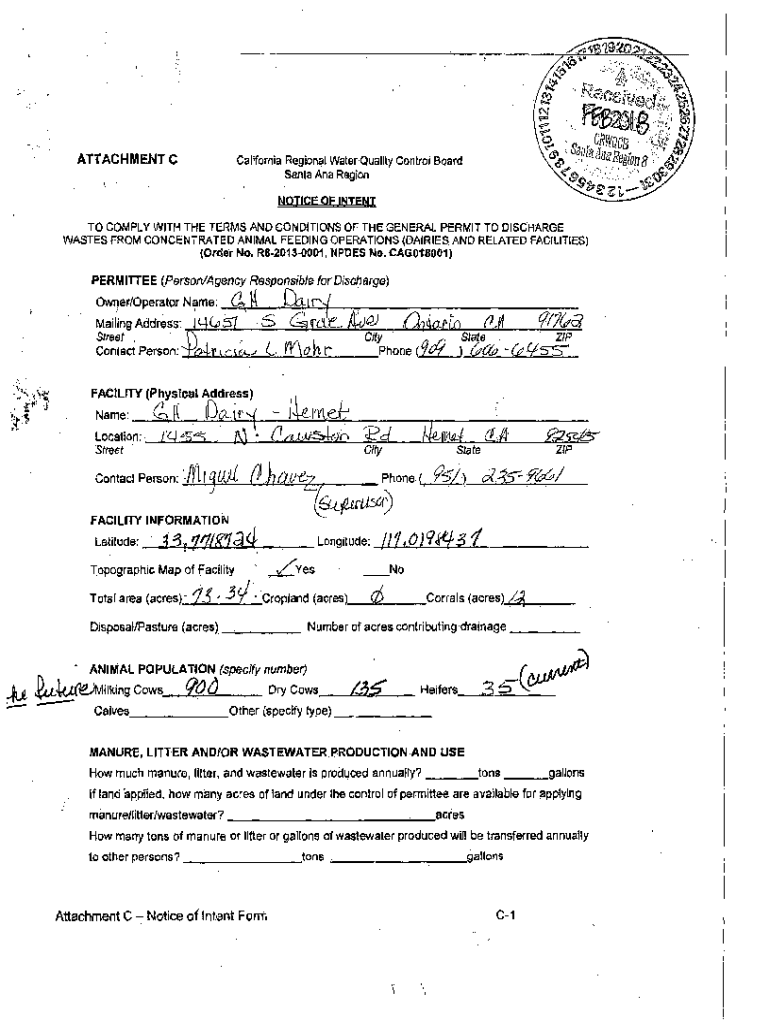 Received
FEB 2018
CRWQCB
Santa Ana Region 8
ATTACHMENT C
California Regional Water Quality Control Board
Santa Ana Region
NOTICE OF INTENT
TO COMPLY WITH THE TERMS AND CONDITIONS OF THE GENERAL PERMIT TO DISCHARGE
WASTES FROM CONCENTRATED ANIMAL FEEDING OPERATIONS (DAIRIES AND RELATED FACILITIES)
(Order No. R8-2013-0001, NPDES No. CAG018001)
PERMITTEE (Person/Agency Responsible for Discharge)
Owner/Operator Name: GH Dairy
Mailing Address: 14651 S Grove Ave Ontario CA 91762
Street City State ZIP
Contact Person: Patricia L Mohr Phone (909) 606-6455
FACILITY (Physical Address)
Name: GH Dairy - Hemet
Location: 1455 N. Cawston Rd Hemet CA 92545
Street City State ZIP
Contact Person: Miguel Chavez Phone (951) 235-9661
(Supervisor)
FACILITY INFORMATION
Latitude: 33,7718724 Longitude: 117.0198437
Topographic Map of Facility ✓ Yes No
Total area (acres) 73.34 Cropland (acres) 0 Corrals (acres) 12
Disposal/Pasture (acres) Number of acres contributing drainage
ANIMAL POPULATION (specify number)
future Milking Cows 900 Dry Cows 135 Heifers 35 (current)
Calves Other (specify type)
MANURE, LITTER AND/OR WASTEWATER PRODUCTION AND USE
How much manure, litter, and wastewater is produced annually? tons gallons
If land applied, how many acres of land under the control of permittee are available for applying
manure/litter/wastewater? acres
How many tons of manure or litter or gallons of wastewater produced will be transferred annually
to other persons? tons gallons
Attachment C – Notice of Intent Form C-1